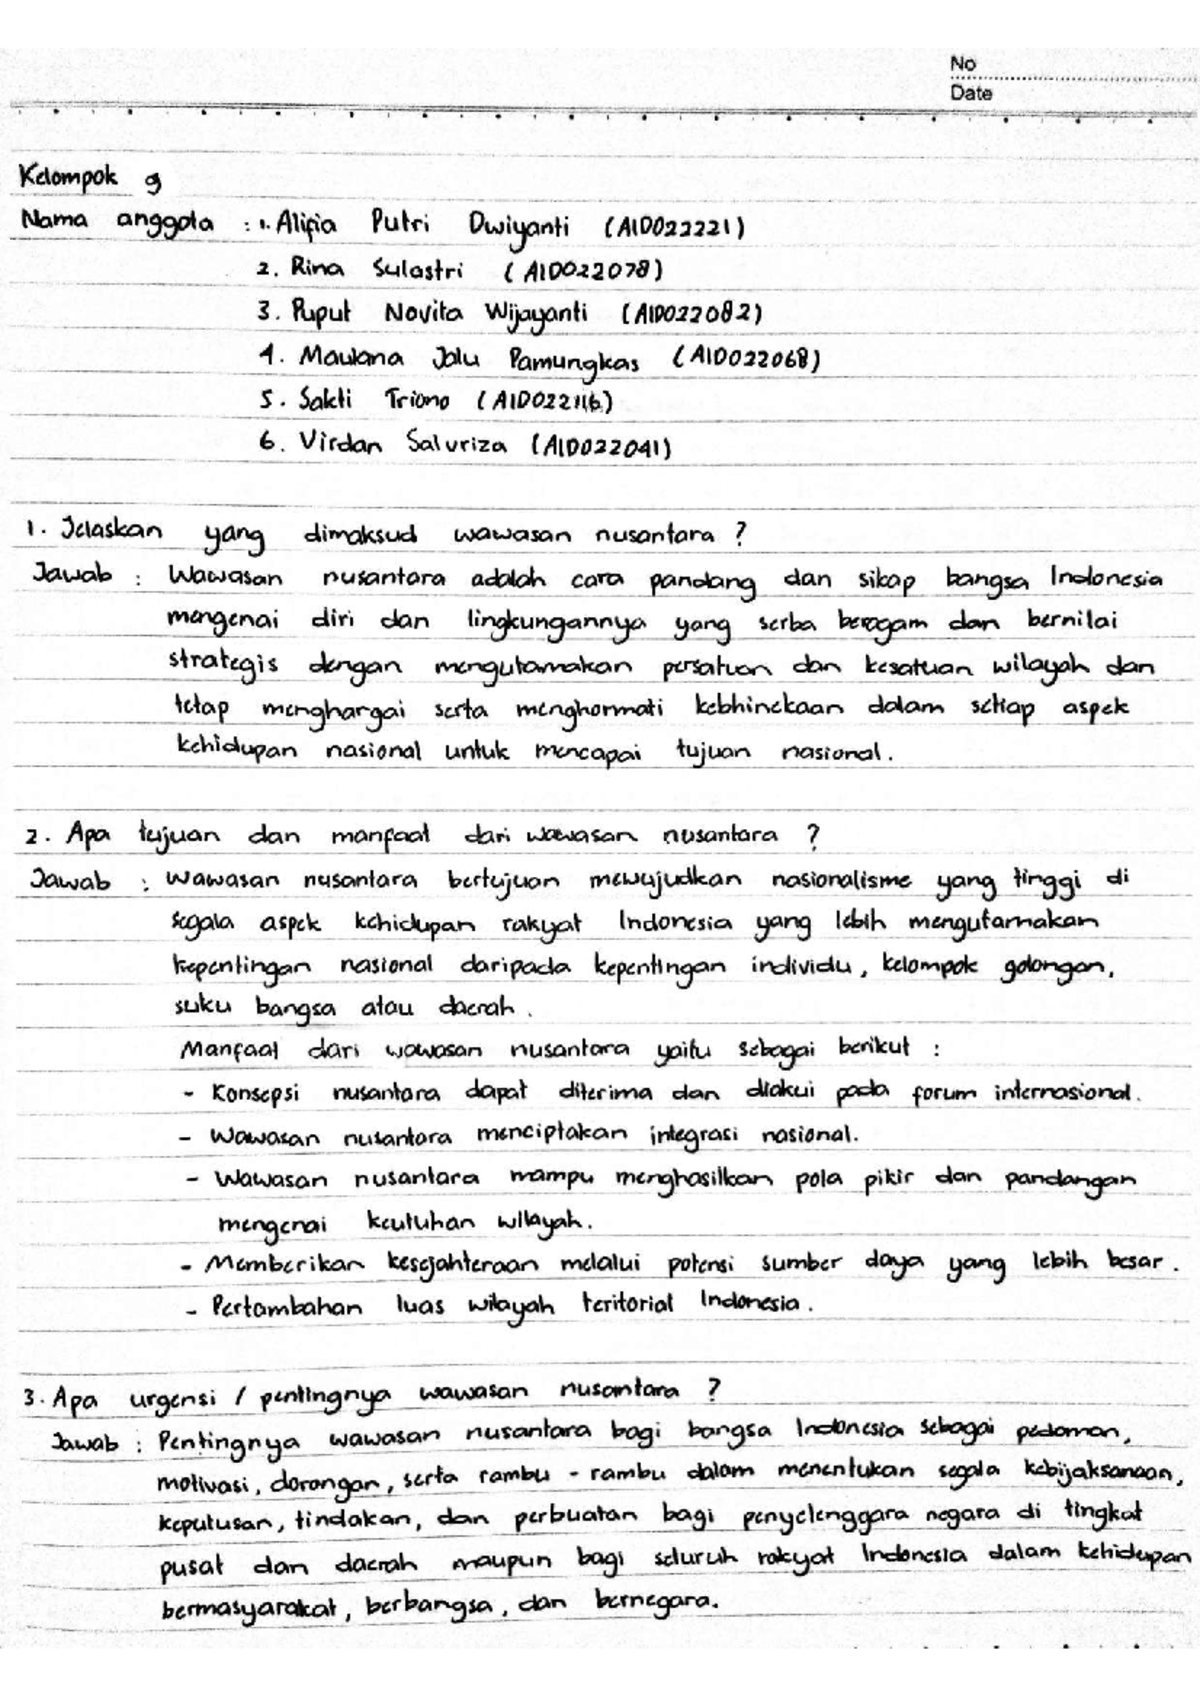 No
Date
Kelompok 9
Nama anggota : 1. Alifia Putri Dwiyanti (A1D022221)
2. Rina Sulastri (A1D022078)
3. Puput Novita Wijayanti (A1D022082)
4. Maulana Jalu Pamungkas (A1D022068)
5. Sakti Triono (A1D022116)
6. Virdan Saluriza (A1D022041)
1. Jelaskan yang dimaksud wawasan nusantara ?
Jawab : Wawasan nusantara adalah cara pandang dan sikap bangsa Indonesia
mengenai diri dan lingkungannya yang serba beragam dan bernilai
strategis dengan mengutamakan persatuan dan kesatuan wilayah dan
tetap menghargai serta menghormati kebhinekaan dalam setiap aspek
kehidupan nasional untuk mencapai tujuan nasional.
2. Apa tujuan dan manfaat dari wawasan nusantara ?
Jawab : Wawasan nusantara bertujuan mewujudkan nasionalisme yang tinggi di
segala aspek kehidupan rakyat Indonesia yang lebih mengutamakan
kepentingan nasional daripada kepentingan individu, kelompok golongan,
suku bangsa atau daerah.
Manfaat dari wawasan nusantara yaitu sebagai berikut :
- Konsepsi nusantara dapat diterima dan diakui pada forum internasional.
- Wawasan nusantara menciptakan integrasi nasional.
- Wawasan nusantara mampu menghasilkan pola pikir dan pandangan
mengenai keutuhan wilayah.
- Memberikan kesejahteraan melalui potensi sumber daya yang lebih besar.
- Pertambahan luas wilayah teritorial Indonesia.
3. Apa urgensi / pentingnya wawasan nusantara ?
Jawab : Pentingnya wawasan nusantara bagi bangsa Indonesia sebagai pedoman,
motivasi, dorongan, serta rambu - rambu dalam menentukan segala kebijaksanaan,
keputusan, tindakan, dan perbuatan bagi penyelenggara negara di tingkat
pusat dan daerah maupun bagi seluruh rakyat Indonesia dalam kehidupan
bermasyarakat, berbangsa, dan bernegara.